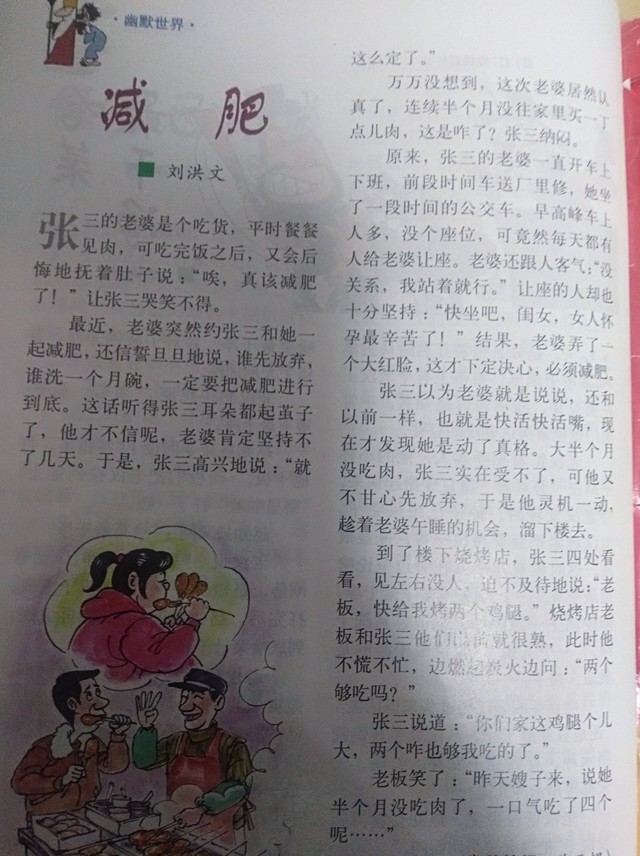 ·幽默世界·
减 肥
■ 刘洪文
张三的老婆是个吃货，平时餐餐
见肉，可吃完饭之后，又会后
悔地抚着肚子说：“唉，真该减肥
了！”让张三哭笑不得。
最近，老婆突然约张三和她一
起减肥，还信誓旦旦地说，谁先放弃，
谁洗一个月碗，一定要把减肥进行
到底。这话听得张三耳朵都起茧子
了，他才不信呢，老婆肯定坚持不
了几天。于是，张三高兴地说：“就
这么定了。”
万万没想到，这次老婆居然认
真了，连续半个月没往家里买一丁
点儿肉，这是咋了？张三纳闷。
原来，张三的老婆一直开车上
下班，前段时间车送厂里修，她坐
了一段时间的公交车。早高峰车上
人多，没个座位，可竟然每天都有
人给老婆让座。老婆还跟人客气：“没
关系，我站着就行。”让座的人却也
十分坚持：“快坐吧，闺女，女人怀
孕最辛苦了！”结果，老婆弄了一
个大红脸，这才下定决心，必须减肥。
张三以为老婆就是说说，还和
以前一样，也就是快活快活嘴，现
在才发现她是动了真格。大半个月
没吃肉，张三实在受不了，可他又
不甘心先放弃，于是他灵机一动，
趁着老婆午睡的机会，溜下楼去。
到了楼下烧烤店，张三四处看
看，见左右没人，迫不及待地说：“老
板，快给我烤两个鸡腿。”烧烤店老
板和张三他们以前就很熟，此时他
不慌不忙，边燃起炭火边问：“两个
够吃吗？”
张三说道：“你们家这鸡腿个儿
大，两个咋也够我吃的了。”
老板笑了：“昨天嫂子来，说她
半个月没吃肉了，一口气吃了四个
呢……”